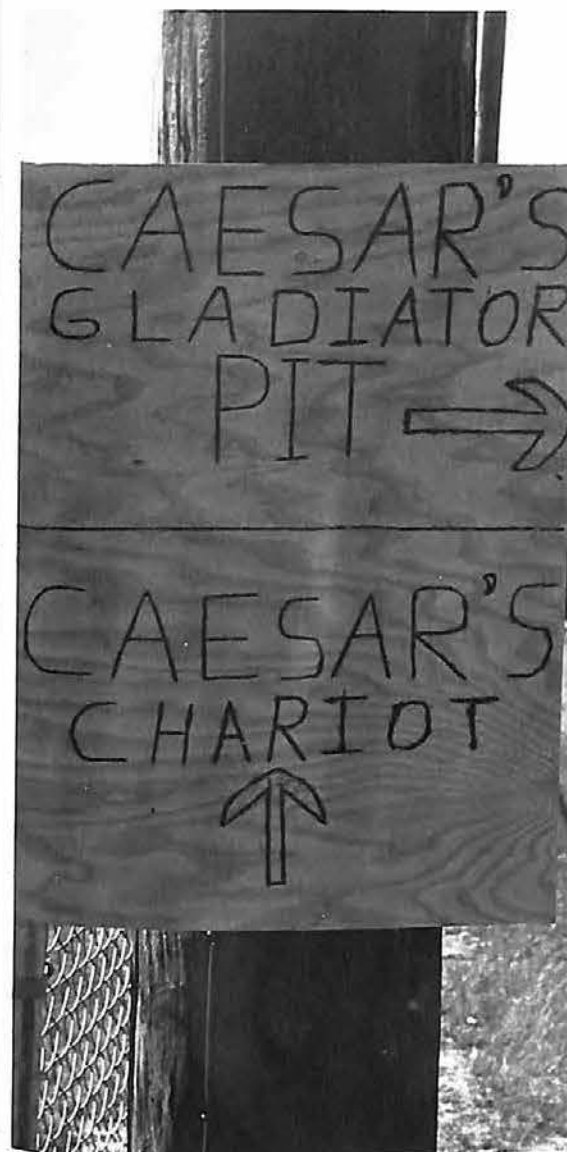 CAESAR'S
GLADIATOR
PIT
CAESAR'S
CHARIOT